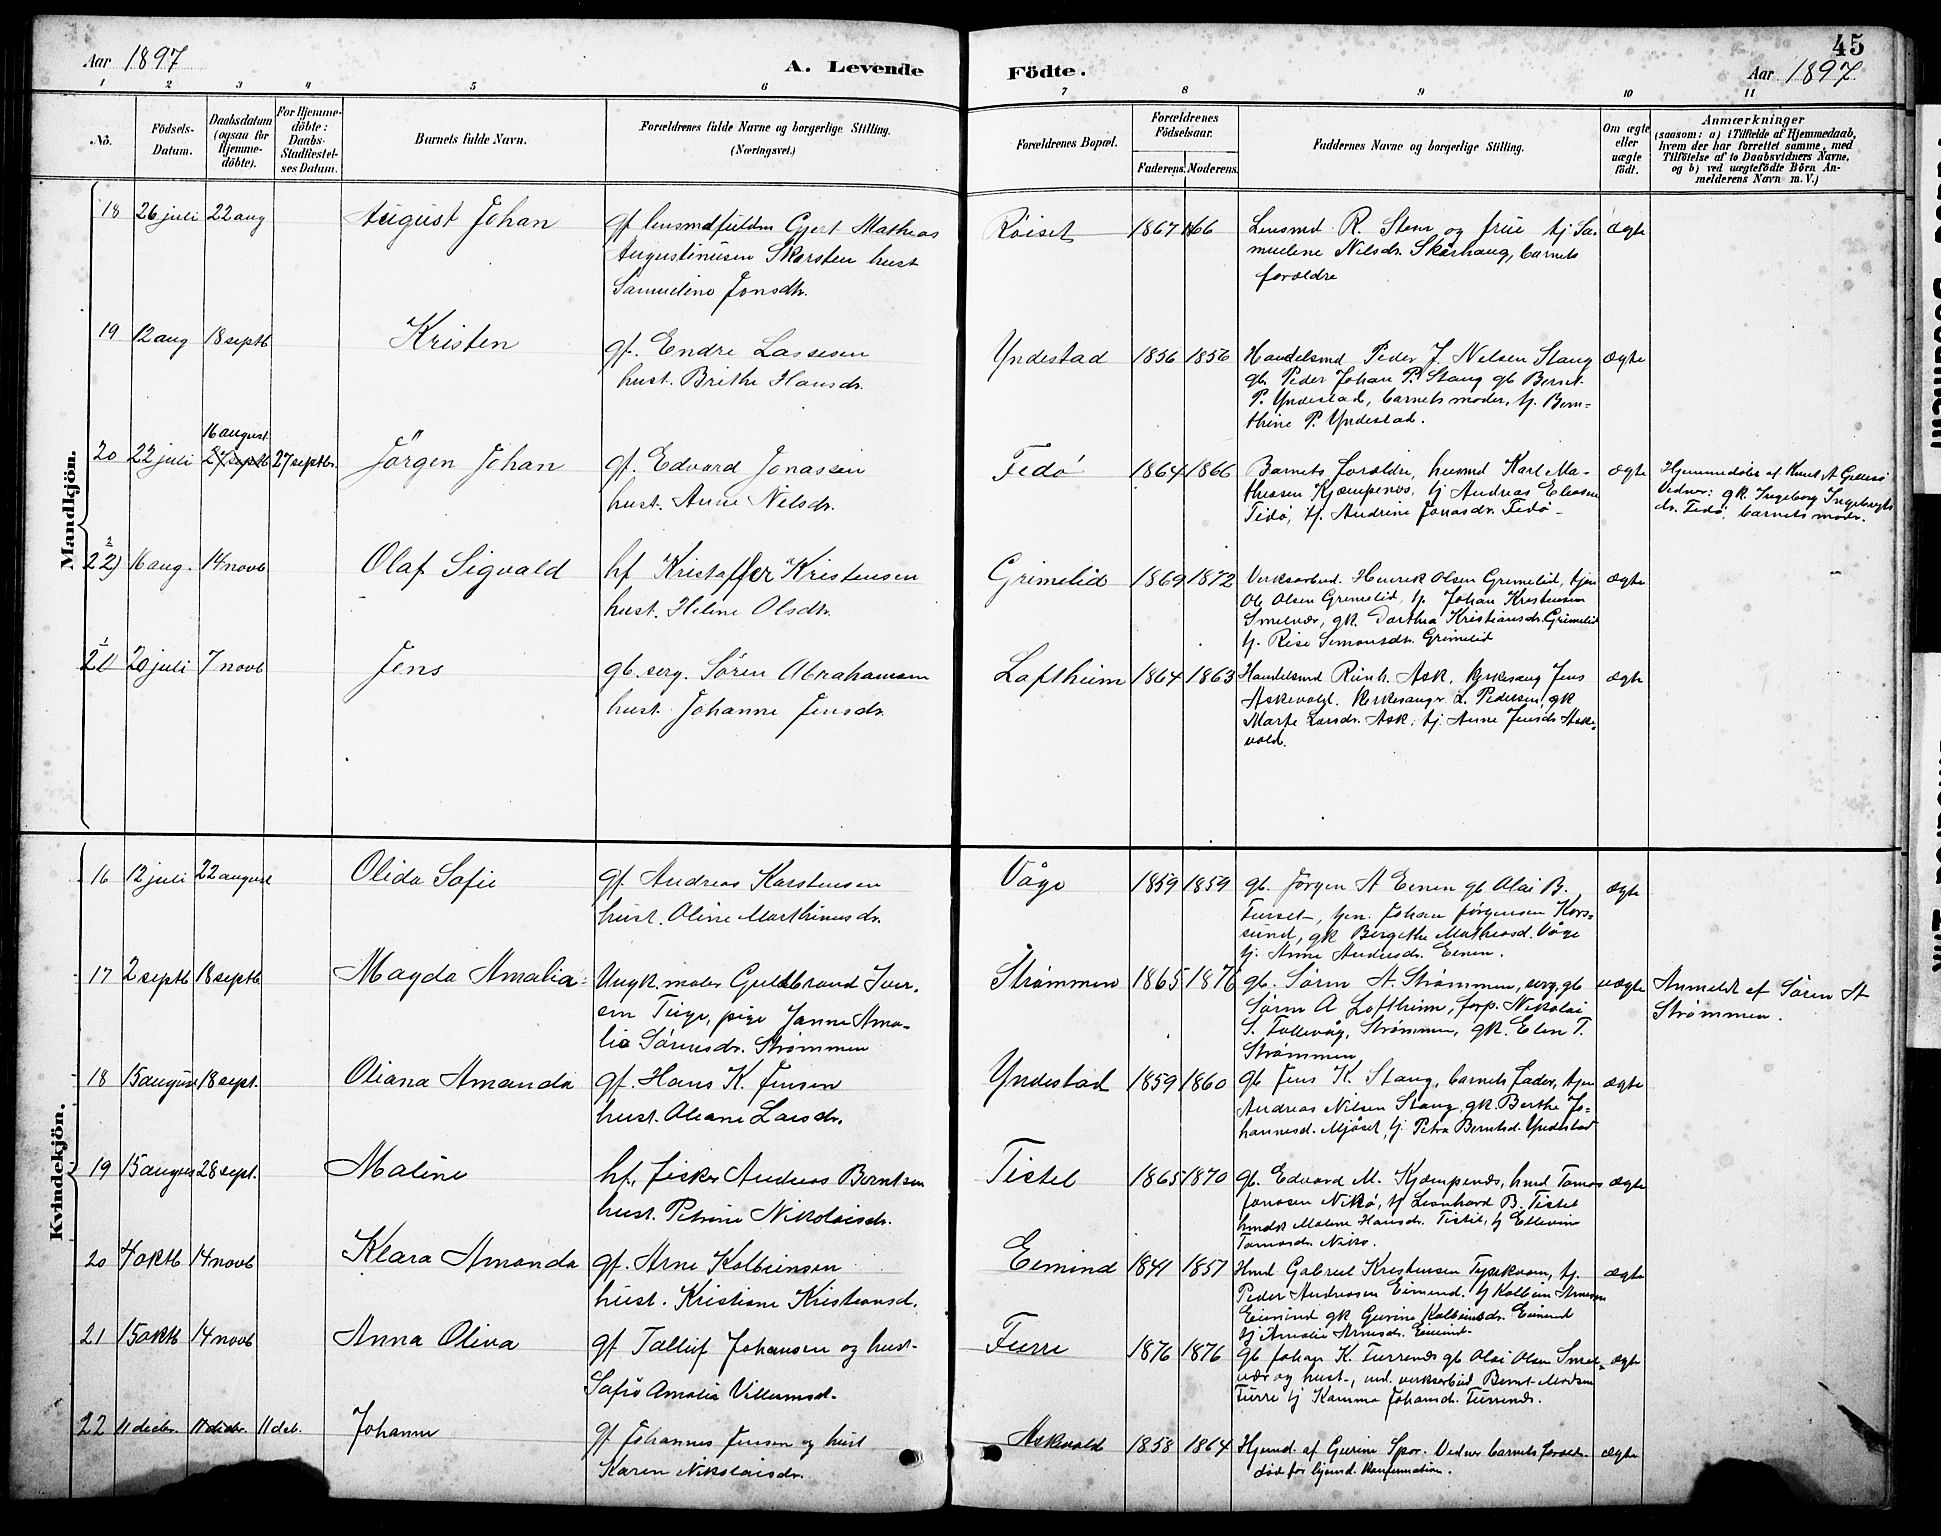 Aar 1897
A. Levende
Födte.
45
Aar 1897.
1 2 3 4 5 6 7 8 9 10 11
No.
Födsels-Datum.
Daabsdatum (ogsaa for Hjemme-döbte).
For Hjemme-döbte: Daabs-Stadfestel-ses Datum.
Barnets fulde Navn.
Forældrenes fulde Navne og borgerlige Stilling. (Næringsvei.)
Forældrenes Bopæl.
Forældrenes Födselsaar.
Faderens. Moderens.
Faddernes Navne og borgerlige Stilling.
Om ægte eller uægte födt.
Anmærkninger
(saasom: a) i Tilfælde af Hjemmedaab, hvem der har forrettet samme, med Tilföielse af to Daabsvidners Navne, og b) ved uægtefödte Börn Anmelderens Navn m. V.)
Mandkjön.
18 26 juli 22 aug August Johan gf lensmdfuldm Gjert Mathias
Augustinusen Skorsten hust
Samueline Jonsdtr.
Röiset 1867 1866 Lensmd. R. Steen og frue tj Sa-
muelene Nilsdr. Skårhaug, barnets
forældre
ægte
19 12 aug 18 septb Kristen gf. Endre Lassesen
hust. Brithe Hansdr.
Yndestad 1856 1856 Handelsmd Peder J. Nelsen Stang
gb Peder Johan P. Stang gb Bernt
P. Yndestad, barnets moder, tj. Bern-
thine P. Yndestad.
ægte
20 22 juli 16 august 27 septb 27 septbr. Jörgen Johan gf. Edvard Jonassen
hust. Anne Nilsdr.
Tedö 1864 1866 Barnets forældre, husmd Karl Ma-
thiasen Kjempenes, tj Andreas Eliasen
Tedö, tj. Andrine Jonasdr. Tedö
ægte
Hjemmedöbt af Knut A
Vidner: gk. Ingeborg Ingebrigts
dr. Tedö, barnets moder.
22) 16 aug. 14 novb Olaf Sigvald hf Kristoffer Kristensen
hust. Helene Olsdtr.
Grimelid 1869 1872 Verksarbeid. Henrik Olsen Grimelid, tjen
Ole Olsen Grimelid, tj. Johan Kristensen
Smelvær, gk. Dorthea Kristiansdr. Grimelid
tj. Rise Simonsdtr. Grimelid
ægte
21) 20 juli 7 novb Jens gb. serg. Sören Abrahamsen
hust. Johanne Jensdr.
Loftheim 1864 1863 Handelsmd Reinh. Ask, kirkesang Jens
Askevold. Kirkesanger L. Pedersen, gk
Marte Larsdr. Ask, tj. Anne Jensdr. Aske-
vold.
ægte
Kvindekjön.
16 12 juli 22 august Olida Sofie gf. Andreas Karstensen
hust. Oline Marthinusdr.
Våge 1859 1859 gb. Jörgen A Eenen gb Olai B.
Furset, tjen. Johan Jörgensen Kors-
sund, gk Bergithe Mathiasd. Våge
tj. Anne Andersdr. Eenen.
ægte
17 2 septb 18 septb Magda Amalia Ungk. maler Guldbrand Iver-
sen Tuge, pige Janne Ama-
lia Sörensdr. Strömmen
Strömmen 1865 1876 gb. Sören A. Strömmen, serg, gb
Sören A Loftheim, forp. Nikolai
S. Follevåg, Strömmen, gk. Elen T.
Strömmen
uægte
Anmeldt af Sören A
Strömmen.
18 15 august 18 sept. Oliana Amanda gf. Hans K. Jensen
hust. Oleane Larsdr.
Yndestad 1859 1860 gb Jens K. Stang, barnets fader, tjen
Andreas Nilsen Stang, gk. Berthe Jo-
hannesd. Mjöset, tj. Petra Berntsd. Yndestad
ægte
19 15 august 28 sept. Maline hf. fisker Andreas Berntsen
hust. Petrine Nikolaisdr.
Tistel 1865 1870 gb. Edvard M. Kjempenes, hmd Tomas
Jonasen Nikö, tj Leonhard B. Tistel
hmdk Malene Hansdr. Tistel, tj Ellevine
Tomasdr. Nikö.
ægte
20 4 oktb 14 novb Klara Amanda gf. Arne Kolbeinsen
hust. Kristiane Kristiansd.
Eimind 1841 1857 Hmd Gabriel Kristensen Tyskvam, tj.
Peder Andreasen Eimind. tj Kolbein Arnesen
Eimind gk Gurine Kolbeinsdr. Eimind
tj Amalie Arnesdr. Eimind
ægte
21 15 oktb 14 novb Anna Oliva gf Tollef Johansen og hust
Sofie Amalia Villumsd.
Furre 1876 1876 gb Johan K. Furrenes gb Olai Olsen Smel-
vær og hust., verksarbeid Bernt Madsen
Furre tj Kamma Johansdr. Furrenes.
ægte
22 11 decbr. 11 decbr. 11 deb. Johanne gf Johannes Jensen og hust
Karen Nikolaisdr.
Askevold 1858 1864 Hjemd. af Gurine Spor. Vidner barnets foreldr.
död för hjemd. konfirmation.
ægte